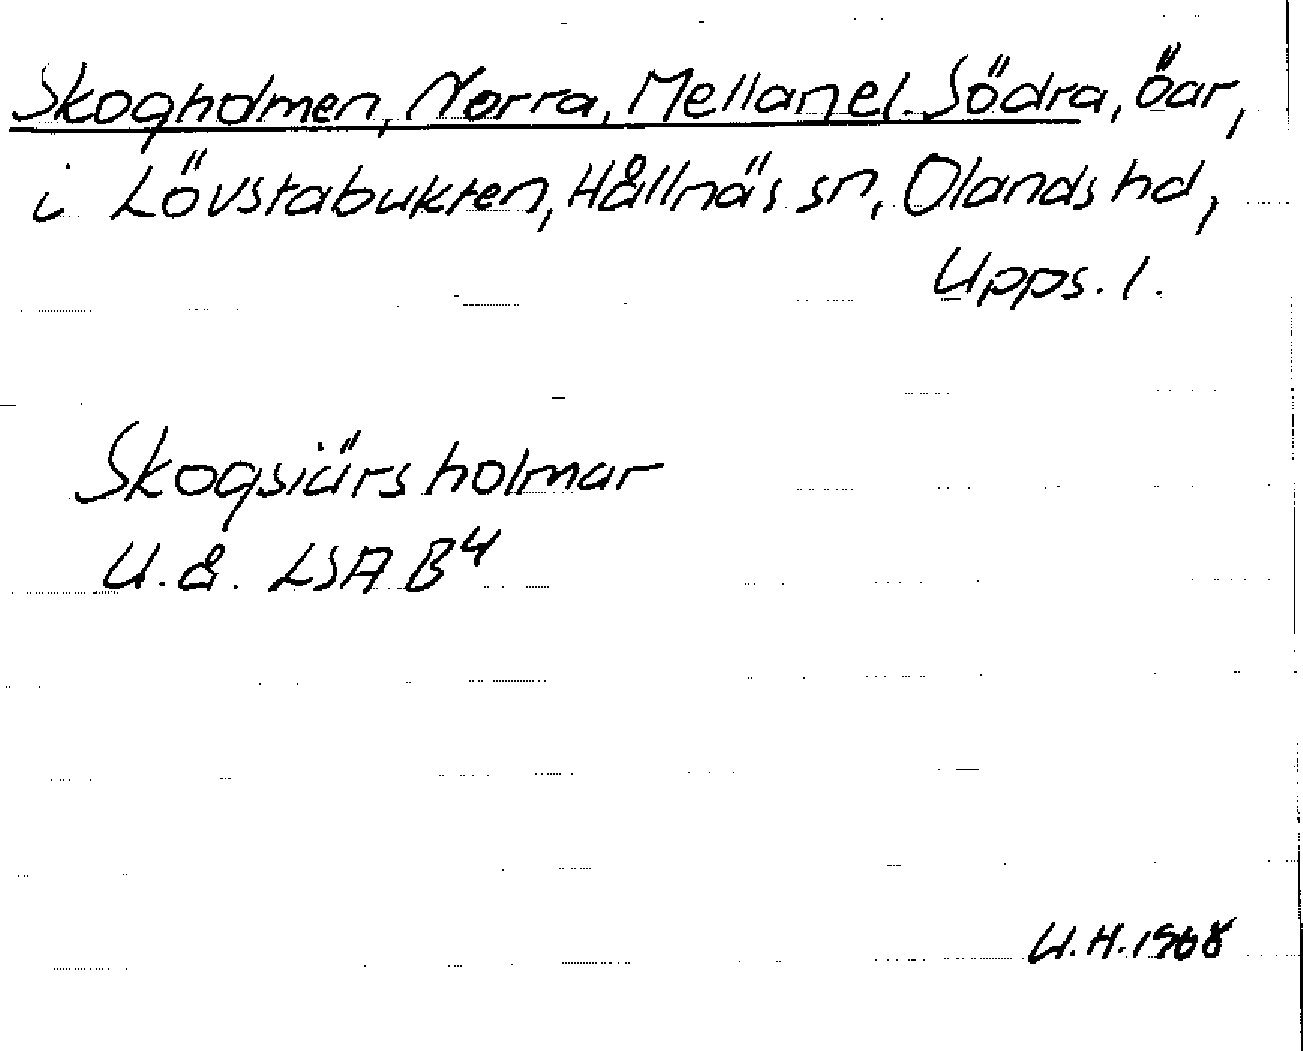 Skogholmen, Norra, Mellan el. Södra, öar,
i Lövstabukten, Hållnäs sn, Olands hd,
Upps. l.
Skogsiärsholmar
U. å. LSA B4
U.H. 1968